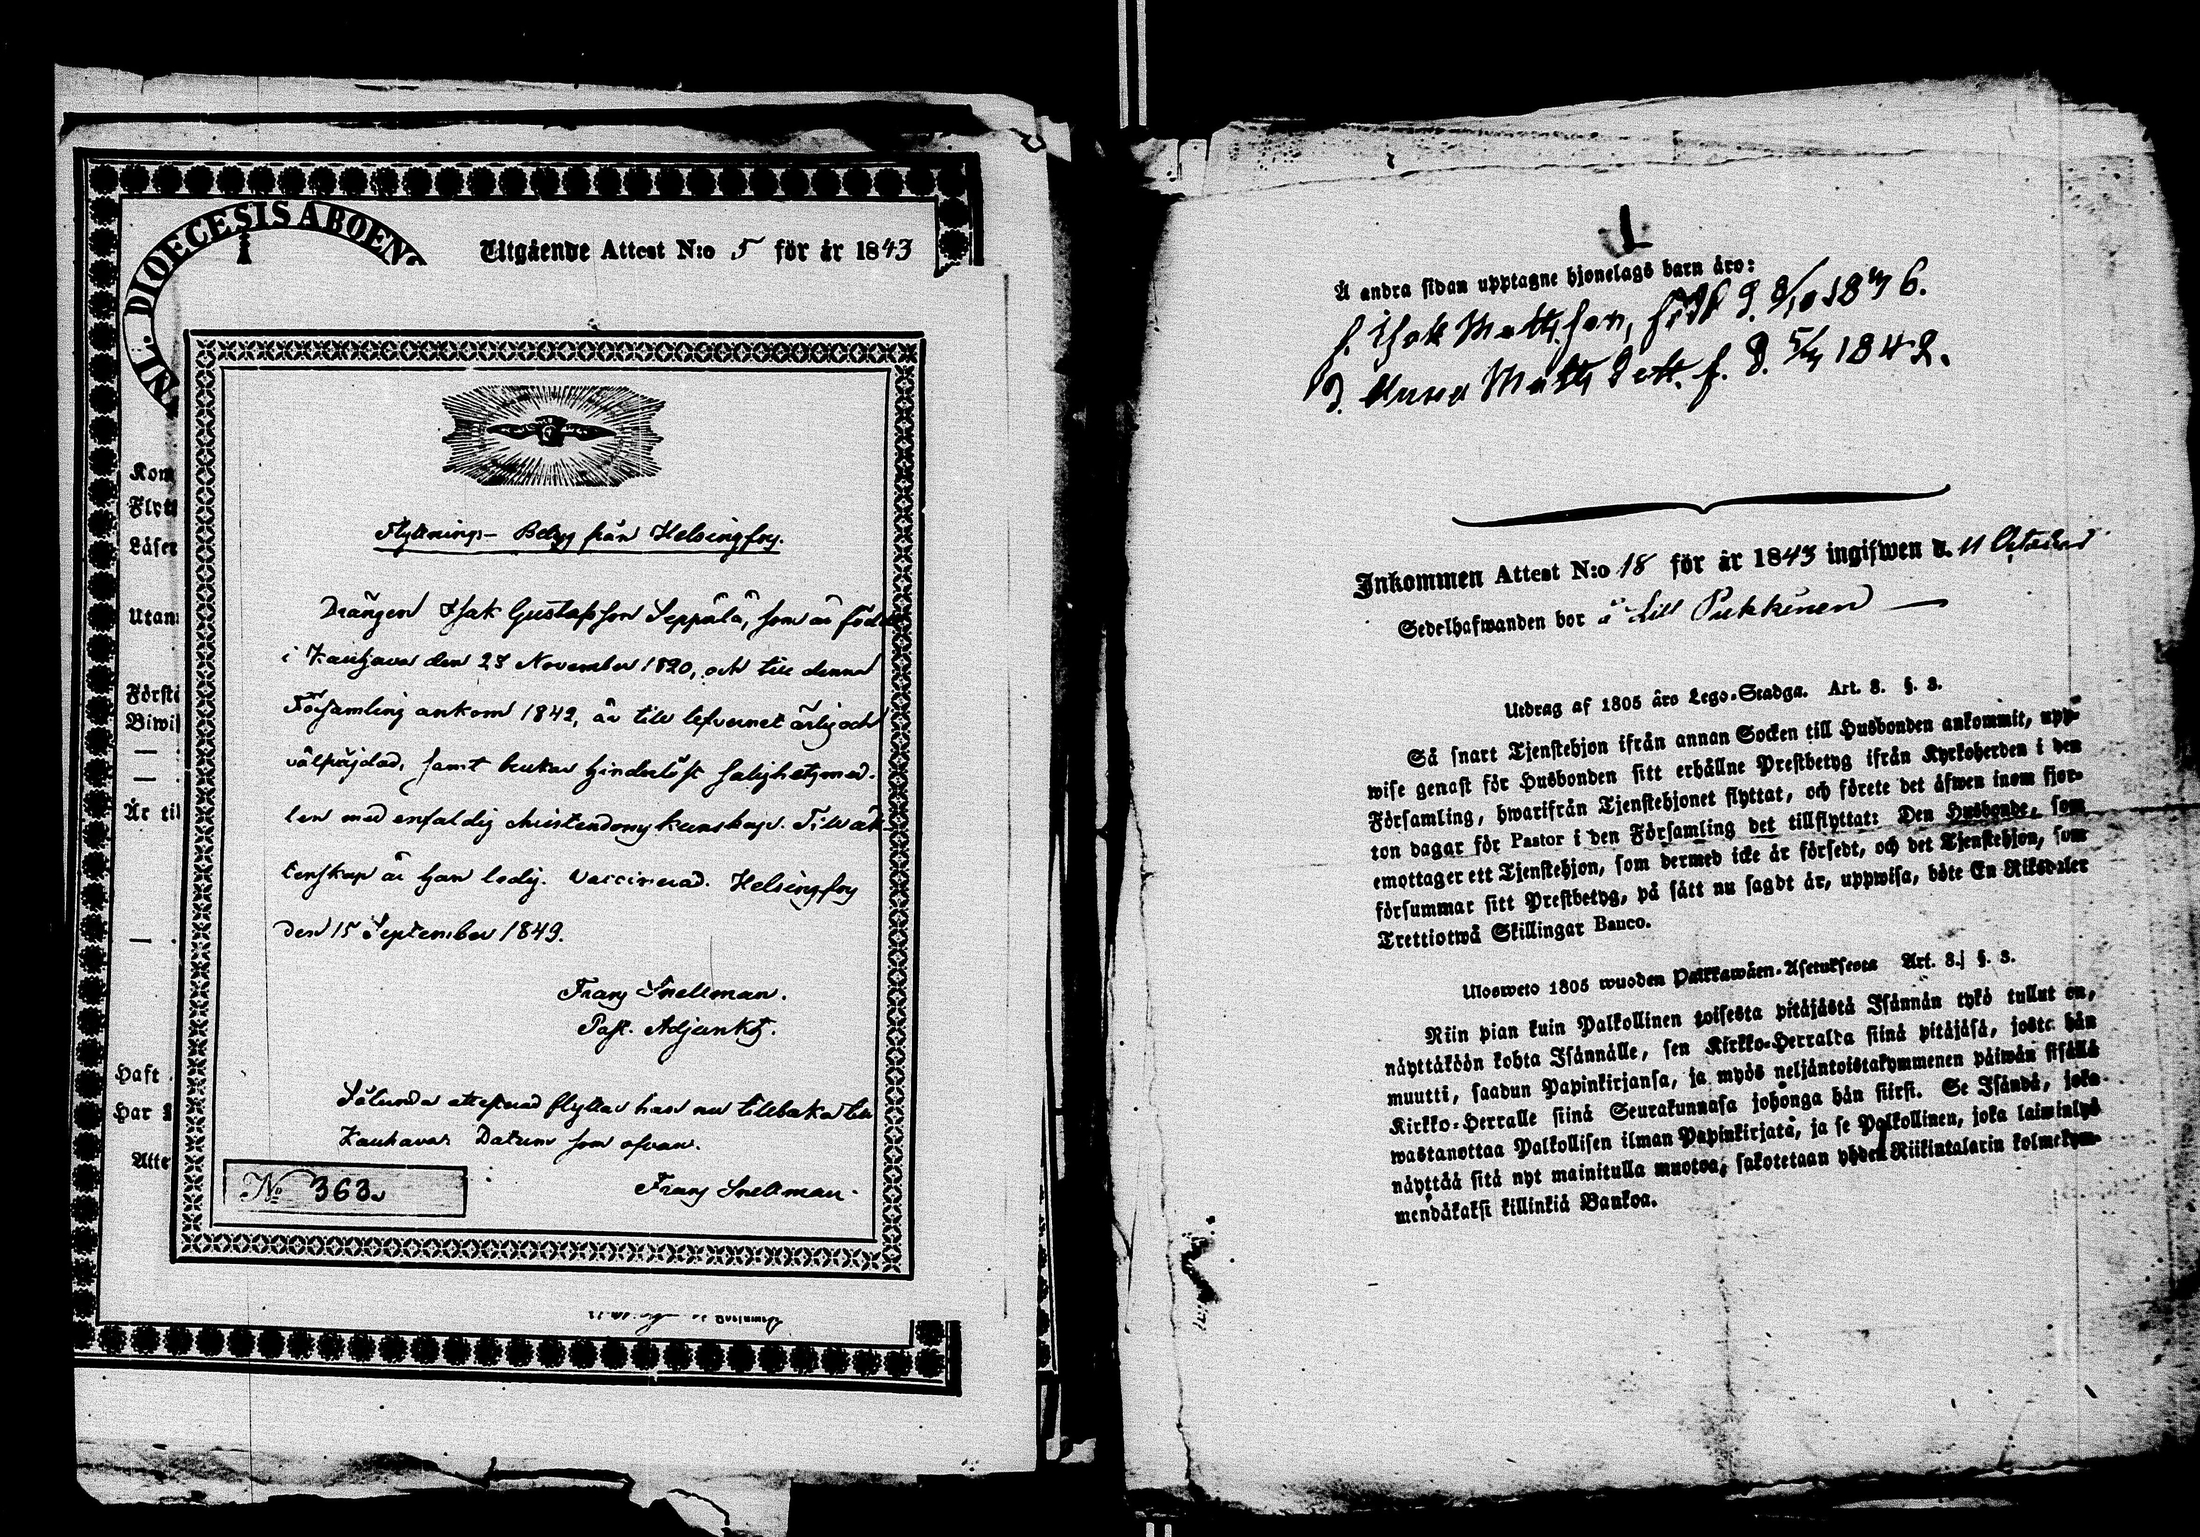 NL. DIOECESIS ABOENS
Utgående Attest N:o 5 för år 1843
Kom
Flytt
Läser
Utan
Förstå
Biwis
Är til
Haft
Har
Atte
Flyttnings- Betyg från Helsingfors.
Drängen Isak Gustafsson Seppälä, som är född
i Kauhava den 23 November 1820, och till denna
Församling ankom 1842, är till lefvernet ärlig och
välfräjdad, samt brukar hinderlöst salighetsmed-
len med enfaldig christendomskunskap. Till äk-
tenskap är han ledig. Vaccinerad. Helsingfors
den 15 September 1843.
Franz Snellman.
Past. Adjunkt.
Sålunda attesterad flyttar han nu tillbaka till
Kauhava. Datum som ofvan.
Franz Snellman.
No 363.
Å andra sidan upptagne hjonelags barn äro:
s. Isak Mattsson, född d. 8/10 1836.
d. Anna Matts dott. f. d. 1842.
Inkommen Attest N:o 18 för år 1843 ingifwen d. 11 October
Sedelhafwanden bor å Lill Pukkinen
Utdrag af 1805 års Lego-Stadga. Art. 3. §. 3.
Så snart Tjenstehjon ifrån annan Socken till Husbonden ankommit, upp-
wise genast för Husbonden sitt erhållne Prestbetyg ifrån Kyrkoherden i den
Församling, hwarifrån Tjenstehjonet flyttat, och förete det äfwen inom fjor-
ton dagar för Pastor i den Församling det tillflyttat: Den Husbonde, som
emottager ett Tjenstehjon, som dermed icke är försedt, och det Tjenstehjon, som
försummar sitt Prestbetyg, på sätt nu sagdt är, uppwisa, böte En Riksdaler
Trettiotwå Skillingar Banco.
Ulosweto 1805 wuoden Palkkawäen-Asetuksesta Art. 3. §. 3.
Niin pian kuin Palkollinen toisesta pitäjästä Isännän tykö tullut on,
näyttäköön kohta Isännälle, sen Kirkko-Herralta siinä pitäjäsä, josta hän
muutti, saadun Papinkirjansa, ja myös neljäntoistakymmenen päiwän sisällä
Kirkko-Herralle siinä Seurakunnasa johonga hän siirsi. Se Isändä, joka
wastanottaa Palkollisen ilman Papinkirjata, ja se Palkollinen, joka laiminlyö
näyttää sitä nyt mainitulla muotoa, sakotetaan yhden Riikintalarin kolmekym-
mendäkaksi killinkiä Bankoa.